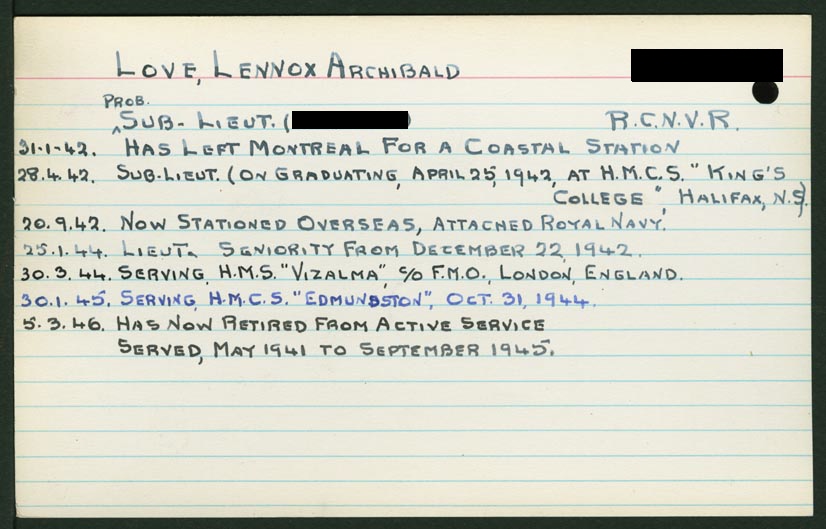 LOVE, LENNOX ARCHIBALD
PROB.
^SUB-LIEUT. ( ) R.C.N.V.R.
31-1-42. HAS LEFT MONTREAL FOR A COASTAL STATION
28.4.42. SUB-LIEUT. (ON GRADUATING, APRIL 25, 1942, AT H.M.C.S. "KING'S
COLLEGE", HALIFAX, N.S).
20.9.42. NOW STATIONED OVERSEAS, ATTACHED ROYAL NAVY.
25.1.44. LIEUT. SENIORITY FROM DECEMBER 22, 1942.
30.3.44. SERVING, H.M.S. "VIZALMA", C/O F.M.O., LONDON, ENGLAND.
30.1.45. SERVING, H.M.C.S. "EDMUNDSTON", OCT. 31, 1944.
5.3.46. HAS NOW RETIRED FROM ACTIVE SERVICE
SERVED, MAY 1941 TO SEPTEMBER 1945.